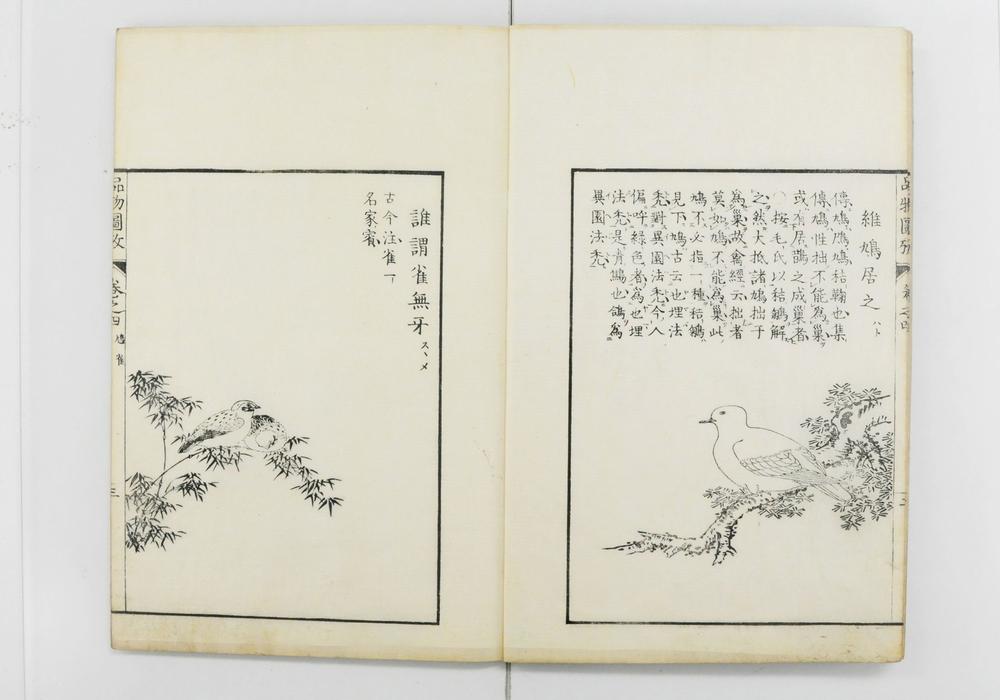 維鳩居之 ハト
傳鳩鳲鳩秸鞠也集
傳鳩性拙不能為巢
或有居鵲之成巢者
○按毛氏以秸鵴解
之然大抵諸鳩拙于
為巢故禽經云拙者
莫如鳩不能為巢此
鳩不必指一種秸鵴
見下鳩古云也埋法
禿對異園法禿今人
傷呼綠色者為也埋
法禿是青鷦也鴿為
異園法禿
品物圖攷
卷之四
三
誰謂雀無牙 スヽメ
古今注雀一
名家賓
品物圖攷
卷之四
鳩雀
三